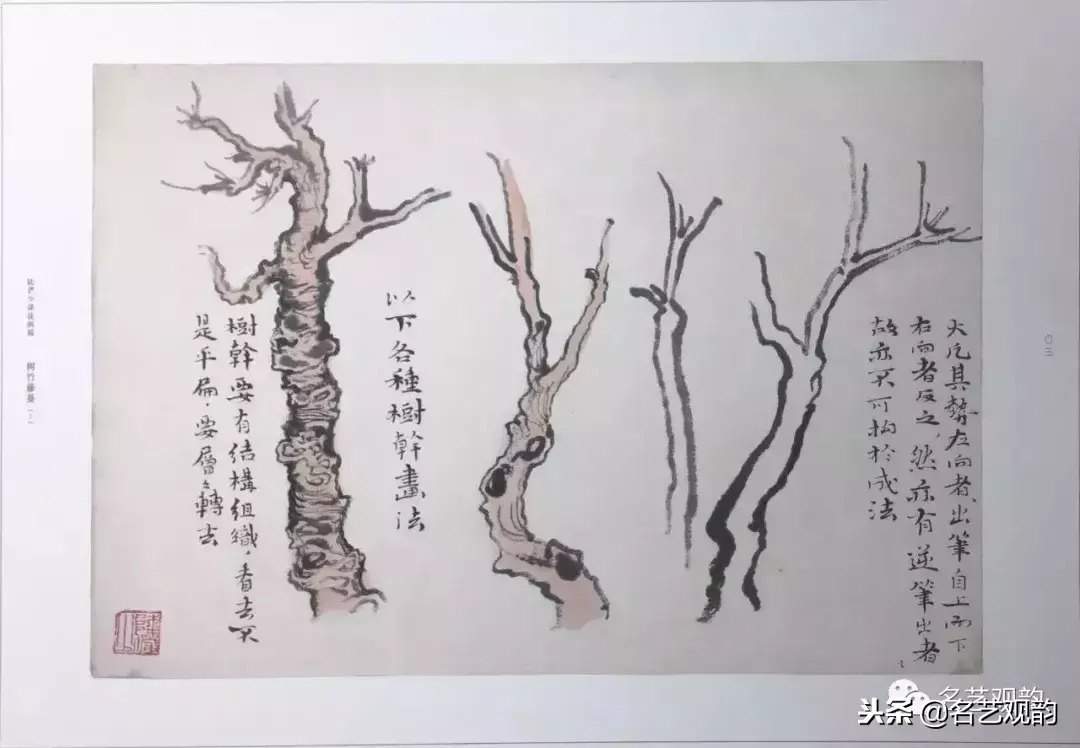 大凡其勢左向者、出筆自上而下
右向者反之、然亦有逆筆出者
故亦不可拘於成法
以下各種樹幹畫法
樹幹要有結構組織，看去不
是平扁，要層々轉去
〇三
树竹藤蔓（一）
名艺观韵
头条@名艺观韵